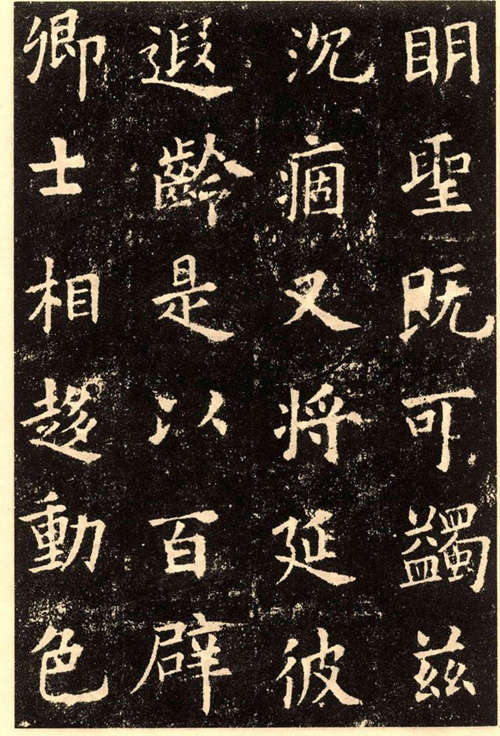 明聖既可蠲兹
沉痼又將延彼
遐齡是以百辟
卿士相趍動色